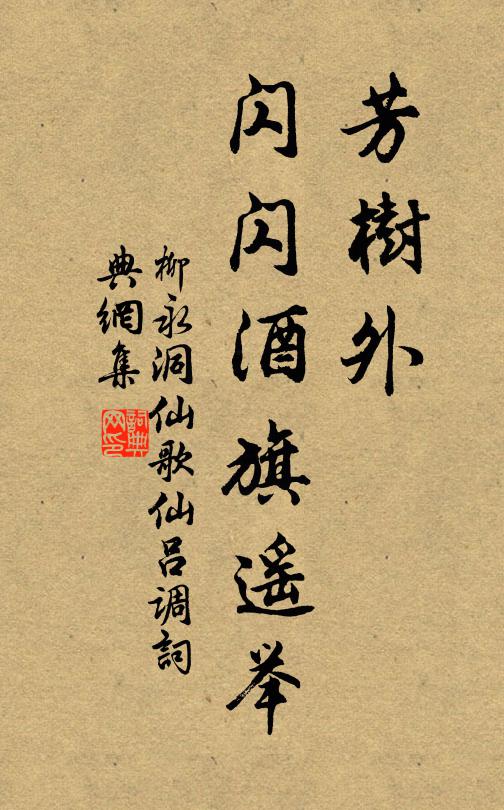 芳樹外
闪闪酒旗遥举
柳永洞仙歌仙吕调詞
典網集
詞典网印